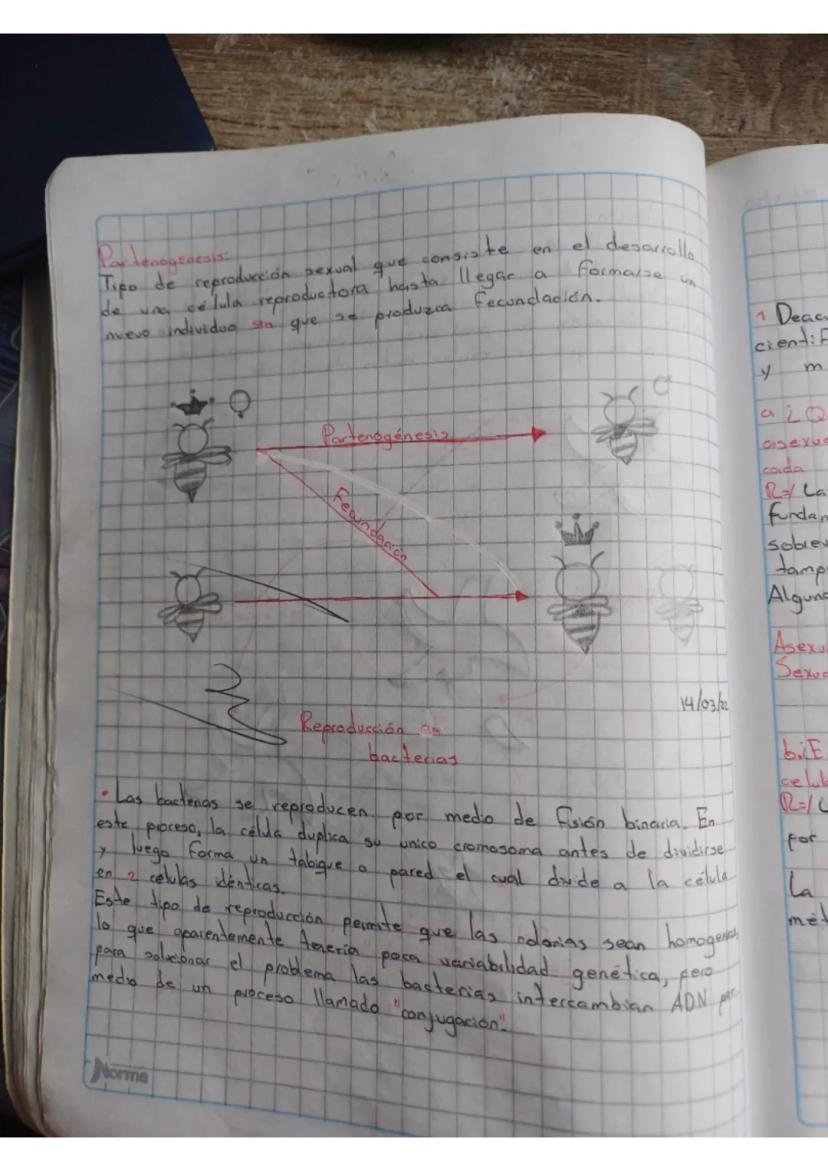 Partenogenesis:
Tipo de reproducción sexual que consiste en el desarrollo
de una célula reproductora hasta llegar a formarse un
nuevo individuo sin que se produzca fecundación.
♀
♂
Partenogénesis
Fecundación
14/03/22
Reproducción en
bacterias
• Las bacterias se reproducen por medio de fusión binaria. En
este proceso, la célula duplica su unico cromosoma antes de dividirse
y luego forma un tabique o pared el cual divide a la célula
en 2 células idénticas.
Este tipo de reproducción permite que las colonias sean homogenas
lo que aparentemente tenería poca variabilidad genética, pero
para solucionar el problema las bacterias intercambian ADN por
medio de un proceso llamado "conjugación".
Norma
1 Deac
cientif
y m
a ¿Q
asexua
cada
R=/ La
fundam
sobrev
tamp
Alguno
Asexu
Sexua
b.¿E
celul
R=/ L
por
La
mét